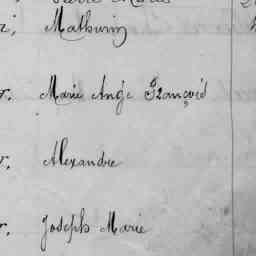 Mathurin
r. Marie Ange François
r. Alexandre
r. Joseph Marie